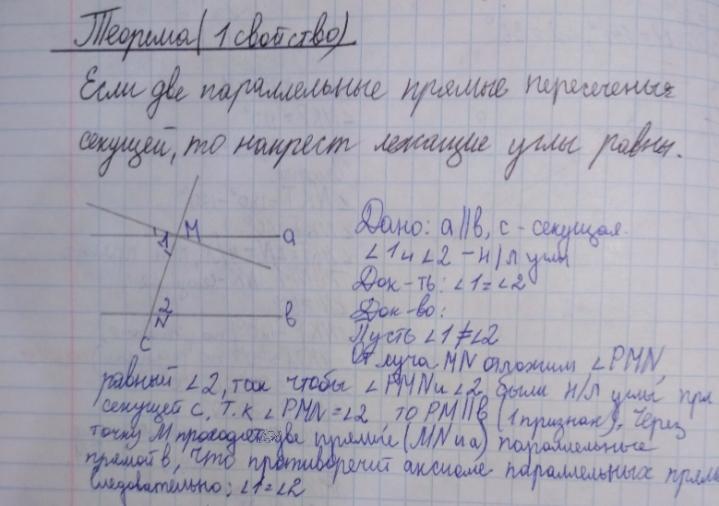 Теорема (1 свойство)
Если две параллельные прямые пересечены
секущей, то накрест лежащие углы равны.
M
1
a
2
N
b
c
Дано: a||b, c - секущая.
∠1 и ∠2 - н/л углы
Док-ть: ∠1=∠2
Док-во:
Пусть ∠1≠∠2
От луча MN отложим ∠PMN,
равный ∠2, так чтобы ∠PMN и ∠2 были н/л углы при
секущей c, т.к ∠PMN=∠2 то PM||b (1 признак). Через
точку M проходят две прямые (MN и a) параллельные
прямой b, что противоречит аксиоме параллельных прямы
Следовательно; ∠1=∠2